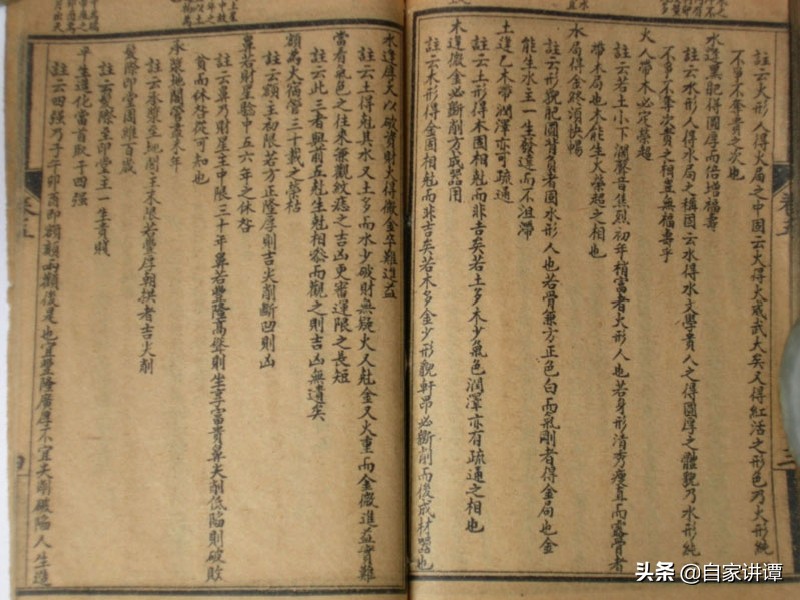 註云火形人得火局之中固云火得火威武大矣又得紅活之形色乃火形純
不爭不奪貴之次也
水逢黑肥得圓厚而倍增福壽
註云水形人得水局之構固云水得水文學貴人之得圓厚之體貌乃水形純
不爭不奪次貴之相豈無福壽乎
火人帶木必定榮超
註云若土小下濶聲音焦烈初年稍富者火形人也若身形清秀瘦直而露骨者
帶木局也木能生火榮超之相也
水局得金終須快暢
註云形貌肥圓背負者圓水形人也若骨兼方正色白而氣剛者得金局也金
能生水主一生發達而不沮滯
土逢乙木帶潤澤亦可疏通
註云土形得木固相尅而非吉矣若土多木少氣色潤澤亦有疏通之相也
木逢微金必斷削方成噐用
註云木形得金固相尅而非吉矣若木多金少形貌軒昂必斷削而後成材噐也
水逢厚土以破資財火得微金卒難進益
註云土得尅其水又土多而水少破財無疑火人尅金又火重而金微進益實難
當看氣色之往來兼觀紋痣之吉凶更審運限之長短
註云此三者與前五尅生尅相參而觀之則吉凶無遺矣
額為火宿管三十載之榮枯
註云額主初限若方正隆厚則吉尖削斷凹則凶
鼻若財星驗中五六年之休咎
註云鼻乃財星主中限三十年鼻若豐隆高聳則坐享富貴鼻尖削低陷則破敗
貧而休咎從可知也
承漿地閣當盡末年
註云承漿至地閣主末限若豐厚朝拱者吉尖削
髮際印堂周維百歲
註云髮際至印堂主一生貴賤
平生造化當首取于四强
註云四强乃子午卯酉即額頦兩顴後是也宜豐隆廣厚不宜尖削破陷人生造
头条 @自家讲谭